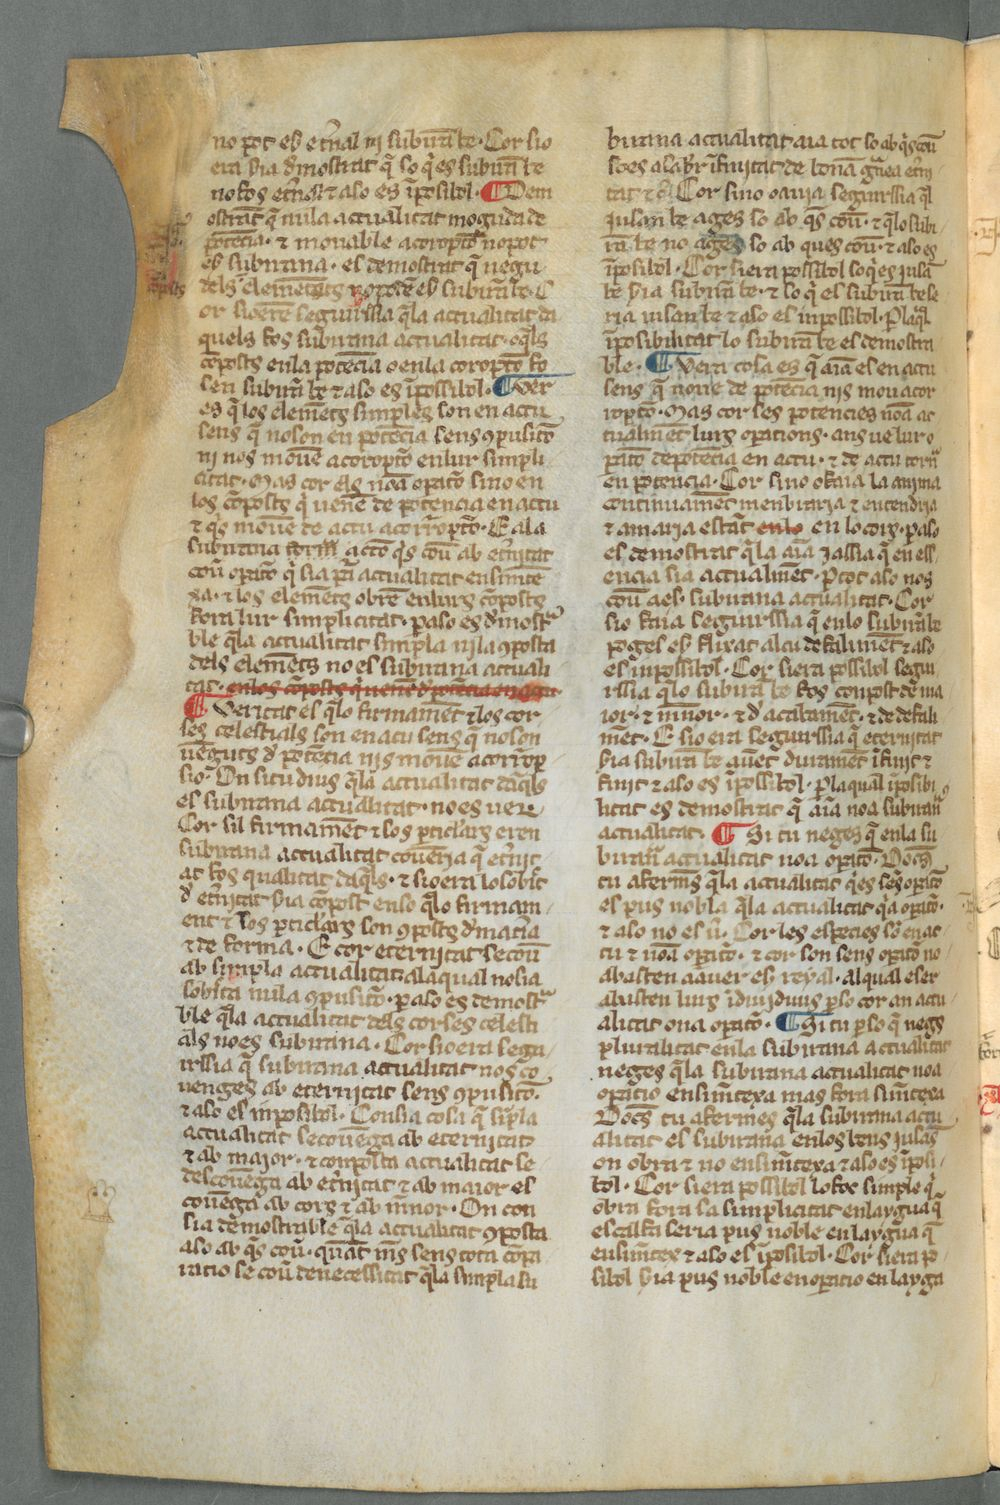 no pot eſſ et̄nal ni subirā be · Cor si o
era sia dmostrat q̄ so q̄ es subirā be
no fos et̄nal & aso es īposibol · ¶ Dem
ostrat q̄ nula actualitat moguda de
potēcia · & mouable a coropcio no pot
eſſ subirana · es demostrat q̄ negu
dels elemēts no poden eſſ subirā be · C
or si o eren seguirssia q̄ la actualitat da
quels fos subirana actualitat · o q̄ls
cōposts en la potēcia o en la coropcio fo
sen subirā be & aso es īpossibol · ¶ Ver
es q̄ los elemēts simples son en actu
sens q̄ no son en potēcia sens ꝯpusicio
ni nos mouē a coropcio en lur simpli
citat · Mas cor els nō ā operacio sino en
los cōposts q̄ venē de potencia en actu
& q̄s mouē de actu a corropcio · E a la
subirana actō q̄s cōue ab et̄nitat
cōue operacio q̄ sia p̄ actualitat en simite
xa · & los elemēts obrē en lurs cōposts
fora lur simplicitat · p aso es dmostra
ble q̄ la actualitat simpla ni la ꝯposta
dels elemēts no es subirana actuali
tat · en los cōposts q̄ venē d potēcia en actu
¶ Veritat es q̄ lo firmamēt & los cor
ses celestials son en actu sens q̄ no son
vēguts d potencia nis mouē a corrop
sio · On si tu dius q̄ la actualitat daq̄ls
es subirana actualitat · no es ver
Cor sil firmamēt & los pticlars eren
subirana actualitat couēria q̄ et̄nit
at fos qualitat daq̄ls · & si o era lo sobirā
d et̄nitat sia cōpost en so q̄ lo firmam
ent & los pticlars son ꝯposts d mat̄ia
& de forma · E cor eternitat se cōue
ab simpla actualitat a la qual no sia
sobirā nula ꝯpusicio · p aso es demostra
ble q̄ la actualitat dels corses celesti
als no es subirana · Cor si o era segu
irssia q̄ subirana actualitat nos co
uenges ab eternitat sens ꝯpusicio ·
& aso es inposibol · Con sia cosa q̄ sīpla
actualitat se couēga ab eternitat
& ab maior · & conposta actualitat se
descouēga ab et̄nitat & ab maior es
couēga ab cors & ab mīnor · On con
sia demostrable q̄ la actualitat ꝯposta
aso ab q̄s cōue · quāt mēs sens tota cōpa
racio se cōue de necessitat q̄ la simpla su
birana actualitat aia tot so ab q̄s cōue
so es a saber īfinitat de bonea granea et̄ni
tat &c̄ · Cor sino o auia seguirssia q̄l
iusan be ages so ab q̄s cōue · & q̄ lo subi
rā be no ages so ab ques cōue · & aso es
īposibol · Cor si era possibol so q̄ es iusā
be sia subirā be · & so q̄ es subirā be se
ria iusan be & aso es inpossibol · p la q̄l
īposibilitat lo subirā be es demostra
ble · ¶ Vera cosa es q̄ aīa es en actu
sens q̄ no ve de potēcia nis mou a cor
ropcio · Mas cor ses potencies nō ā ac
tualmēt lurs operacions · ans ve lur o
peracio de potēcia en actu · & de actu torna
en potencia · Cor sino o faia la anima
continuamēt menbraria & entendria
& amaria estāt en lo en lo cors · p aso
es demostrat q̄ la aīa iassia q̄ en ess
encia sia actualmēt · P tot aso nos
cōue a es · subirana actualitat · Cor
si o faia seguirssia q̄ en lo subirā be
poges eſſ flixat alcu defalimēt & aso
es inpossibol · Cor si era possibol segui
irssia q̄ lo subirā be fos conpost de ma
ior · & minor · & d acabamēt · & de defali
mēt · E si o era seguirssia q̄ eternitat
sia subirā be auēt durament īfinit &
finit & aso es īpossibol · p la qual īposibi
litat es demostrat q̄ aīa no a subirana
actualitat · ¶ Si tu neges q̄ en la su
birana actualitat no a operacio · Docs
tu afermes q̄ la actualitat q̄ es sēs operacio
es pus nobla q̄ la actualitat q̄ a operacio ·
& aso no es ū · Cor les especies so en ac
tu & nō ā operacio · & cor son sens operacio no
abasten a auer eſſ reyal · al qual eser
abasten lurs īdiuiduus p so cor an actu
alitat on a operacio · ¶ Si tu p so q̄ negs
pluralitat en la subirana actualitat
neges q̄ la subirana actualitat no a
operacio en simtexa mas fora simtexa
Docs tu afermes q̄ la subirana actu
alitat es subirana en los bens iusās
on obra & no en simtexa & aso es īposi
bol · Cor si era possibol lo foc simple q̄
obra fora sa simplicitat en laygua q̄
escalfa seria pus noble en laygua q̄
en simtex & aso es īposibol · Cor si era po
sibol sia pus noble en operacio en layga